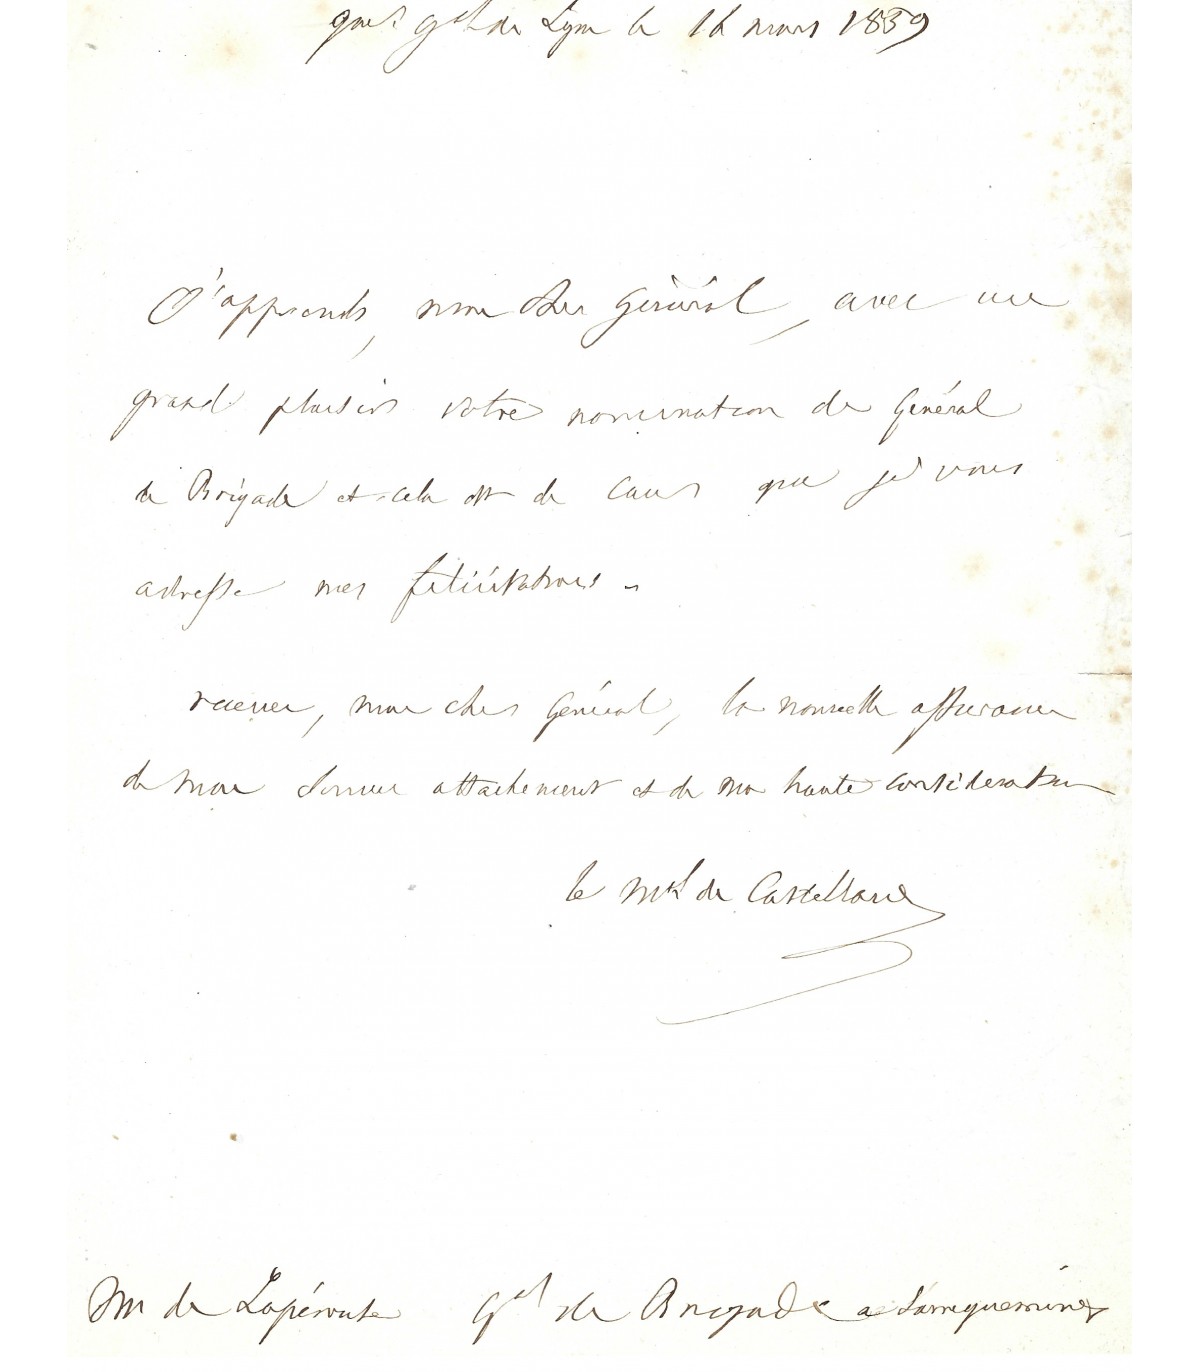 quer gal de Lyon le 16 mars 1859
J'apprends, mon cher Général, avec un
grand plaisir votre nomination de Général
de Brigade et cela est de cœur que je vous
adresse mes félicitations.
recevez, mon cher Général, la nouvelle assurance
de mon sincère attachement et de ma haute considération
le Mal de Castellane
M de Lapérouse Gal de Brigade a Sarreguemines